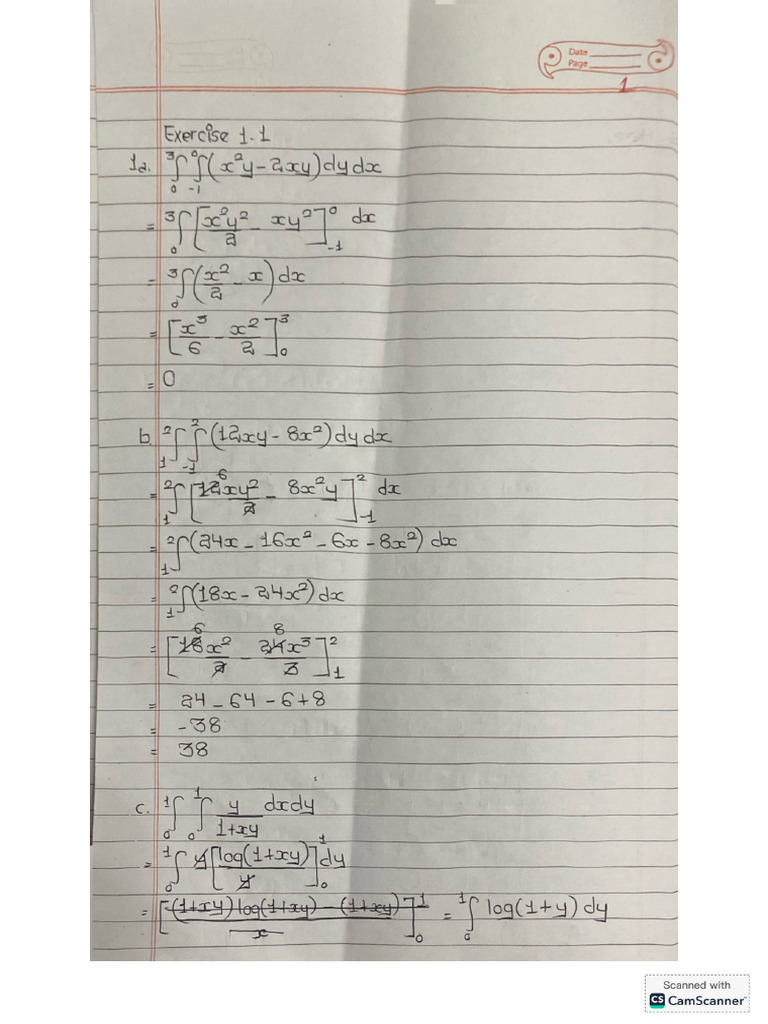 Date
Page
1
Exercise 1.1
1a. ³∫₀ ⁰∫₋₁ (x²y - 2xy) dy dx
= ³∫₀ [x²y²/2 - xy²]⁰₋₁ dx
= ³∫₀ (x²/2 - x) dx
= [x³/6 - x²/2]³₀
= 0
b. ²∫₁ ²∫₋₁ (12xy - 8x²) dy dx
= ²∫₁ [12 6 xy²/2 - 8x²y]²₋₁ dx
= ²∫₁ (24x - 16x² - 6x - 8x²) dx
= ²∫₁ (18x - 24x²) dx
= [18 6 x²/2 - 24 8 x³/3]²₁
= 24 - 64 - 6 + 8
= -38
= 38
c. ¹∫₀ ¹∫₀ y/(1+xy) dx dy
= ¹∫₀ y [log(1+xy)/y]¹₀ dy
= [(1+xy) log(1+xy) - (1+xy)/x]¹₀ = ¹∫₀ log(1+y) dy
Scanned with
CS CamScanner